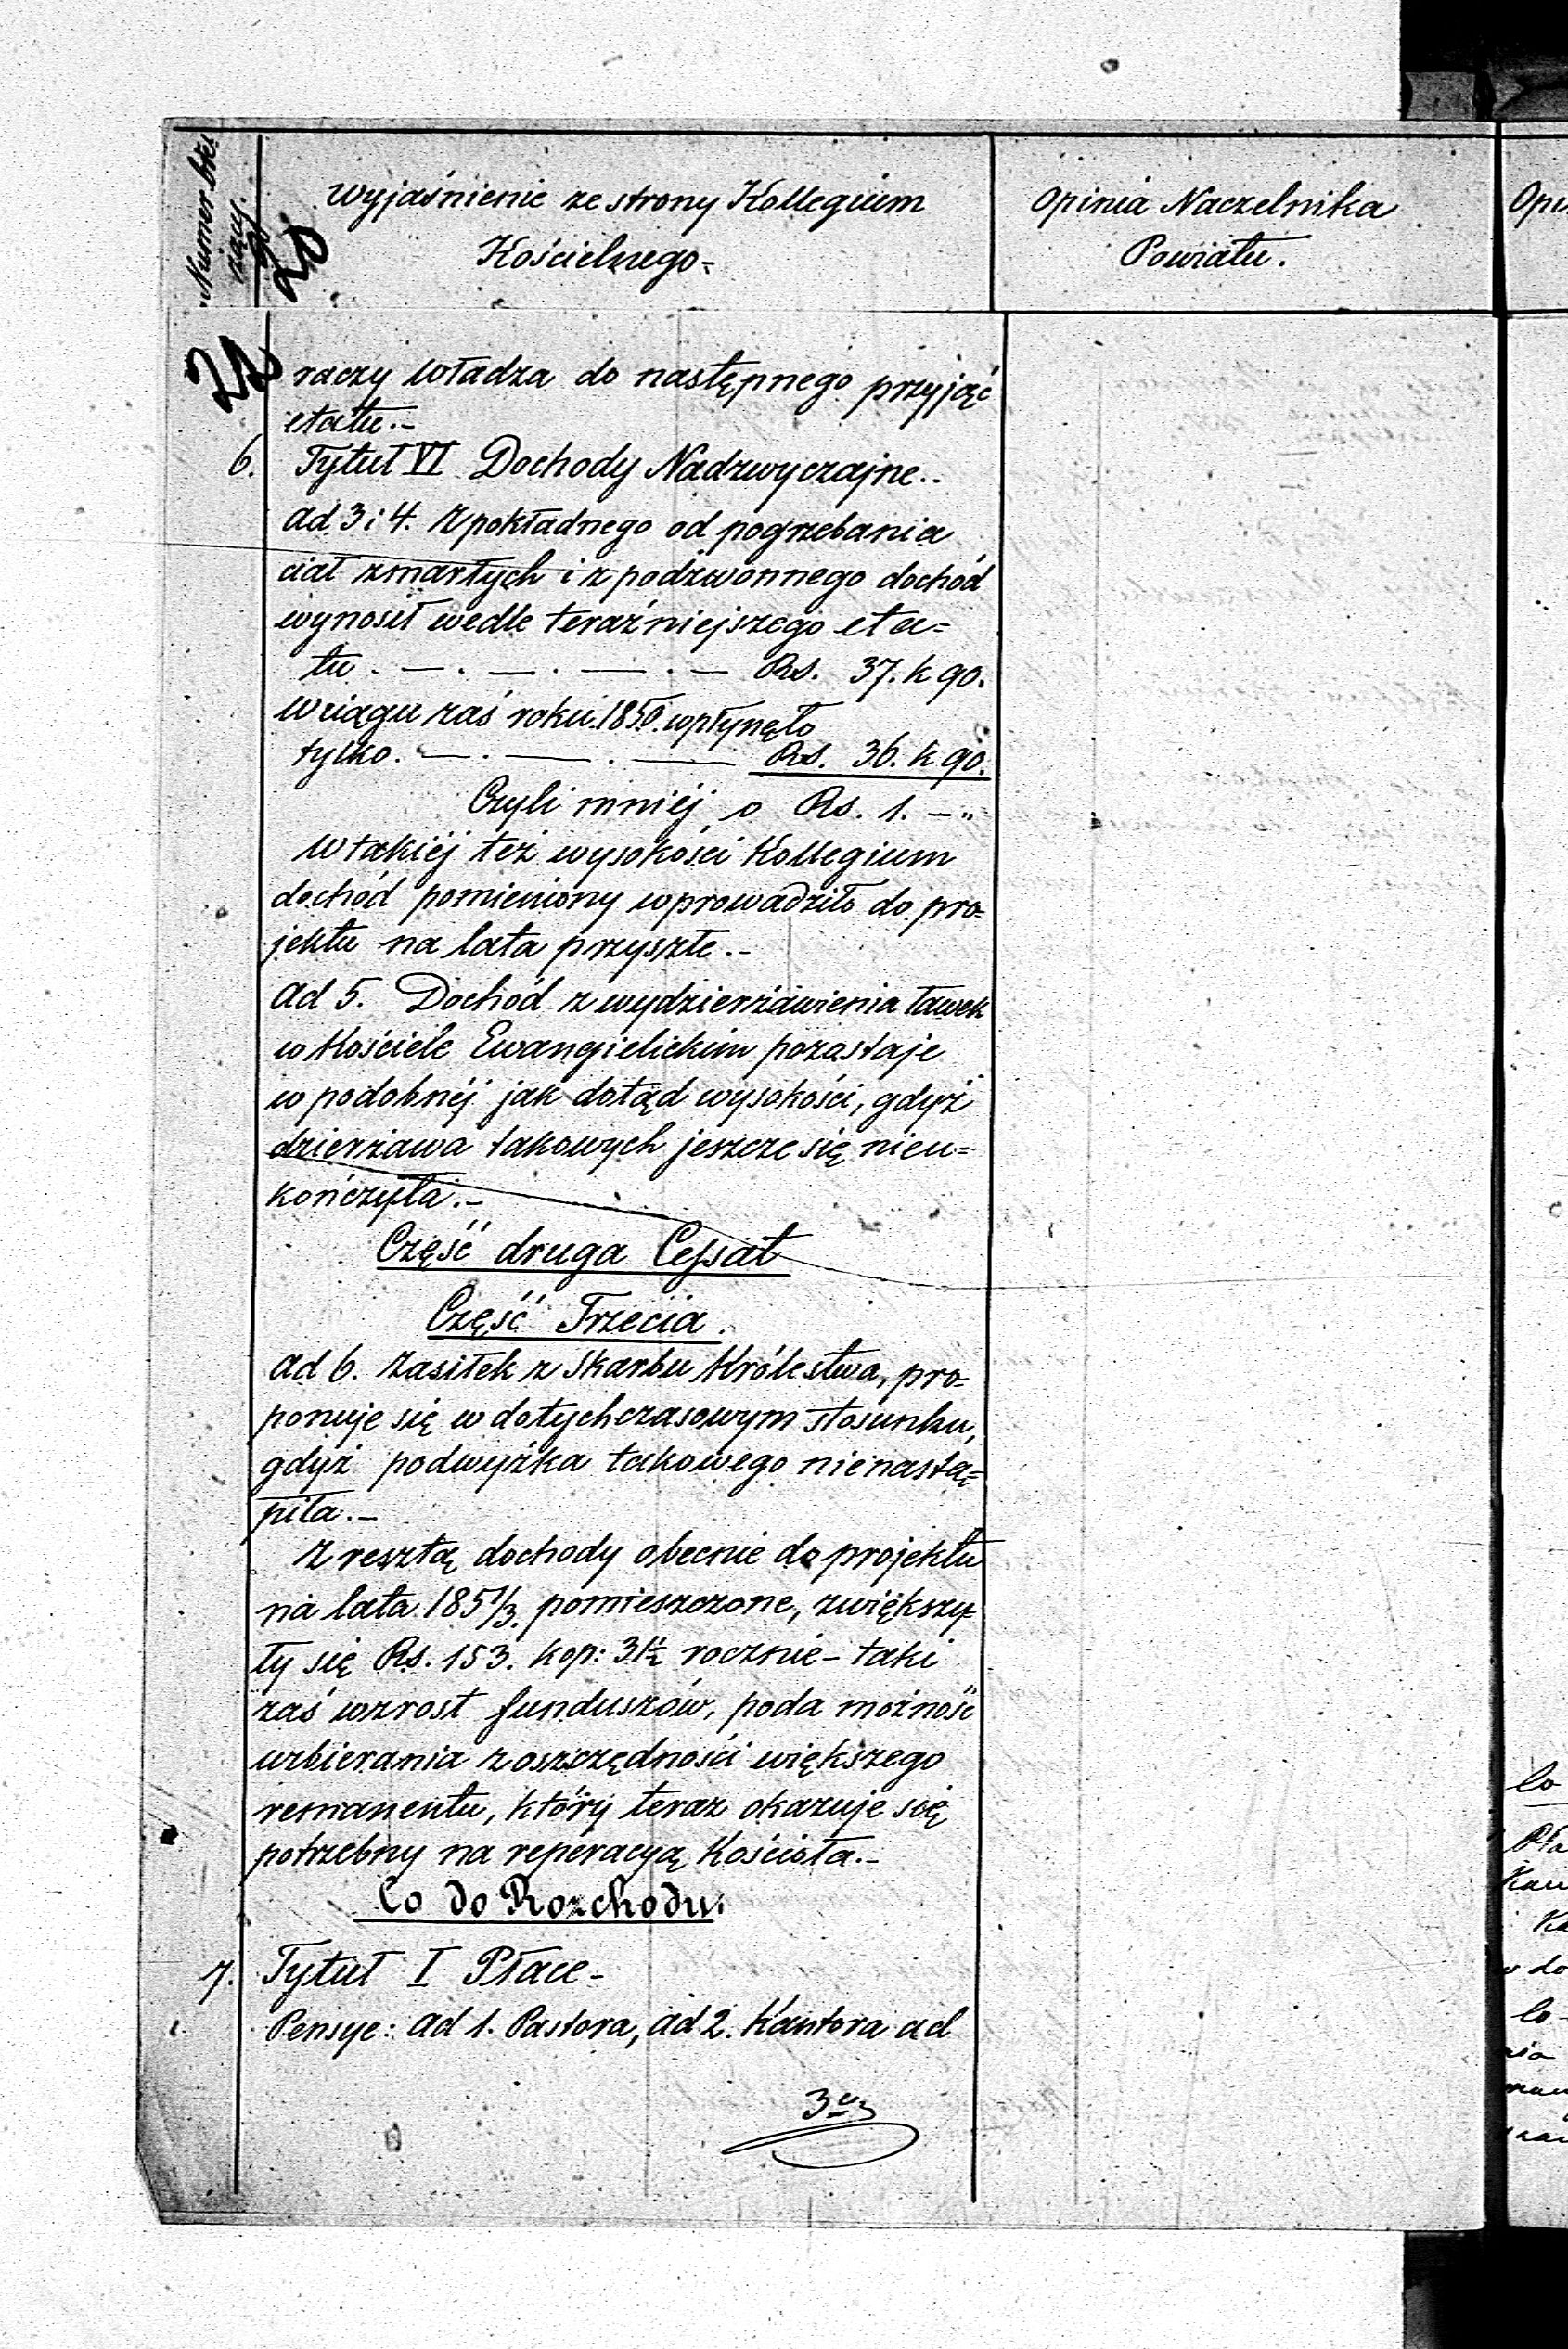 Numer bie
żący.
Wyjaśnienie ze strony Kollegium
Kościelnego-
Opinia Naczelnika
Powiatu.
20
22
raczy władza do następnego przyjąć
etatu.-
6. Tytuł VI Dochody Nadzwyczajne.-
ad 3 i 4. Z pokładnego od pogrzebania
ciał zmarłych i z podzwonnego dochód
wynosił wedle teraźniejszego eta=
tu . — . — . — . — Rs. 37. k 90.
W ciągu zaś roku 1850. wpłynęło
tylko. — . — . — Rs. 36. k 90.
Czyli mniéj o Rs. 1. — „
W takiéj też wysokości Kollegium
dochód pomieniony wprowadziło do pro-
jektu na lata przyszłe.-
ad 5. Dochód z wydzierżawienia ławek
w Kościele Ewangielickim pozostaje
w podobnéj jak dotąd wysokości, gdyż
dzierżawa takowych jeszcze się nieu=
kończyła.-
Część druga Cessat
Część Trzecia.
ad 6. Zasiłek z Skarbu Królestwa, pro-
ponuje się w dotychczasowym stosunku,
gdyż podwyżka takowego nienastą=
piła.-
Z resztą dochody obecnie do projektu
na lata 1851/3. pomieszczone, zwiększy-
ły się Rs. 153. kop: 31½ rocznie - taki
zaś wzrost funduszów, poda możność
uzbierania z oszczędności większego
remanentu, który teraz okazuje się
potrzebny na reperacyą Kościoła.-
Co do Rozchodu.
7. Tytuł I Płace-
Pensye: ad 1. Pastora, ad 2. Kantora ad